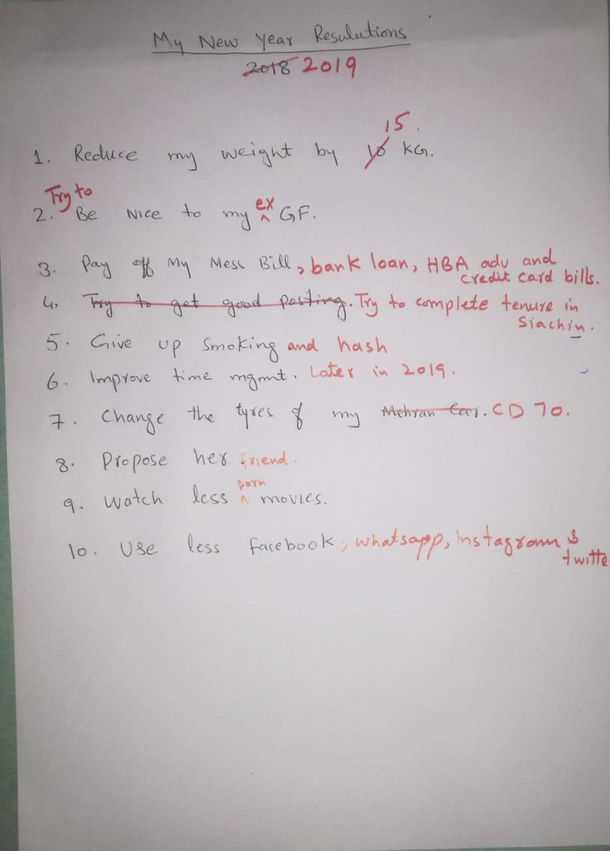 My New Year Resulutions
2018 2019
15.
1. Reduce my weight by 10 KG.
Try to
2. Be Nice to my ex GF.
3. Pay off My Mess Bill, bank loan, HBA adv and
credit card bills.
4. Try to get good posting. Try to complete tenure in
Siachin.
5. Give up smoking and hash
6. Improve time mgmt. Later in 2019.
7. Change the tyres of my Mehran Car. CD 70.
8. Propose her friend.
porn
9. Watch less movies.
10. Use less facebook, whatsapp, instagram &
twitte